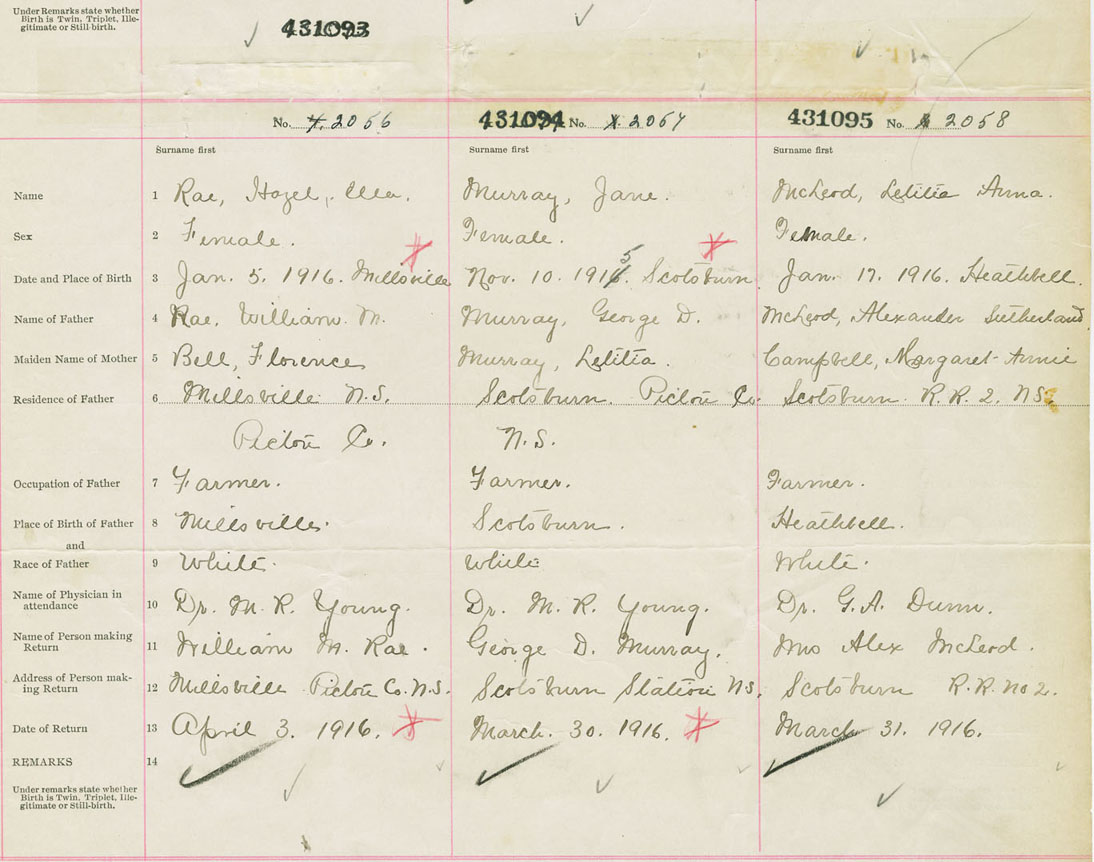 Under Remarks state whether
Birth is Twin, Triplet, Ille-
gitimate or Still-birth.
431093
No. 2056
431094 No. 2057
431095 No. 2058
Surname first Surname first Surname first
Name 1 Rae, Hazel, Ella. Murray, Jane. McLeod, Letitia Anna.
Sex 2 Female. Female. Female.
Date and Place of Birth 3 Jan. 5. 1916. Millsville Nov. 10. 1915. Scotsburn Jan. 17. 1916. Heathbell.
Name of Father 4 Rae, William. M. Murray, George D. McLeod, Alexander Sutherland
Maiden Name of Mother 5 Bell, Florence Murray, Letitia. Campbell, Margaret Annie
Residence of Father 6 Millsville N.S. Scotsburn. Pictou Co. Scotsburn R.R. 2. NS.
Pictou Co. N.S.
Occupation of Father 7 Farmer. Farmer. Farmer.
Place of Birth of Father 8 Millsville. Scotsburn. Heathbell.
and
Race of Father 9 White. White White.
Name of Physician in
attendance 10 Dr. M. R. Young. Dr. M. R. Young. Dr. G. A. Dunn.
Name of Person making
Return 11 William M. Rae. George D. Murray. Mrs Alex McLeod.
Address of Person mak-
ing Return 12 Millsville Pictou Co. N.S. Scotsburn Station NS. Scotsburn R.R. No 2.
Date of Return 13 April 3. 1916. March. 30. 1916. March 31. 1916.
REMARKS 14
Under remarks state whether
Birth is Twin, Triplet, Ille-
gitimate or Still-birth.